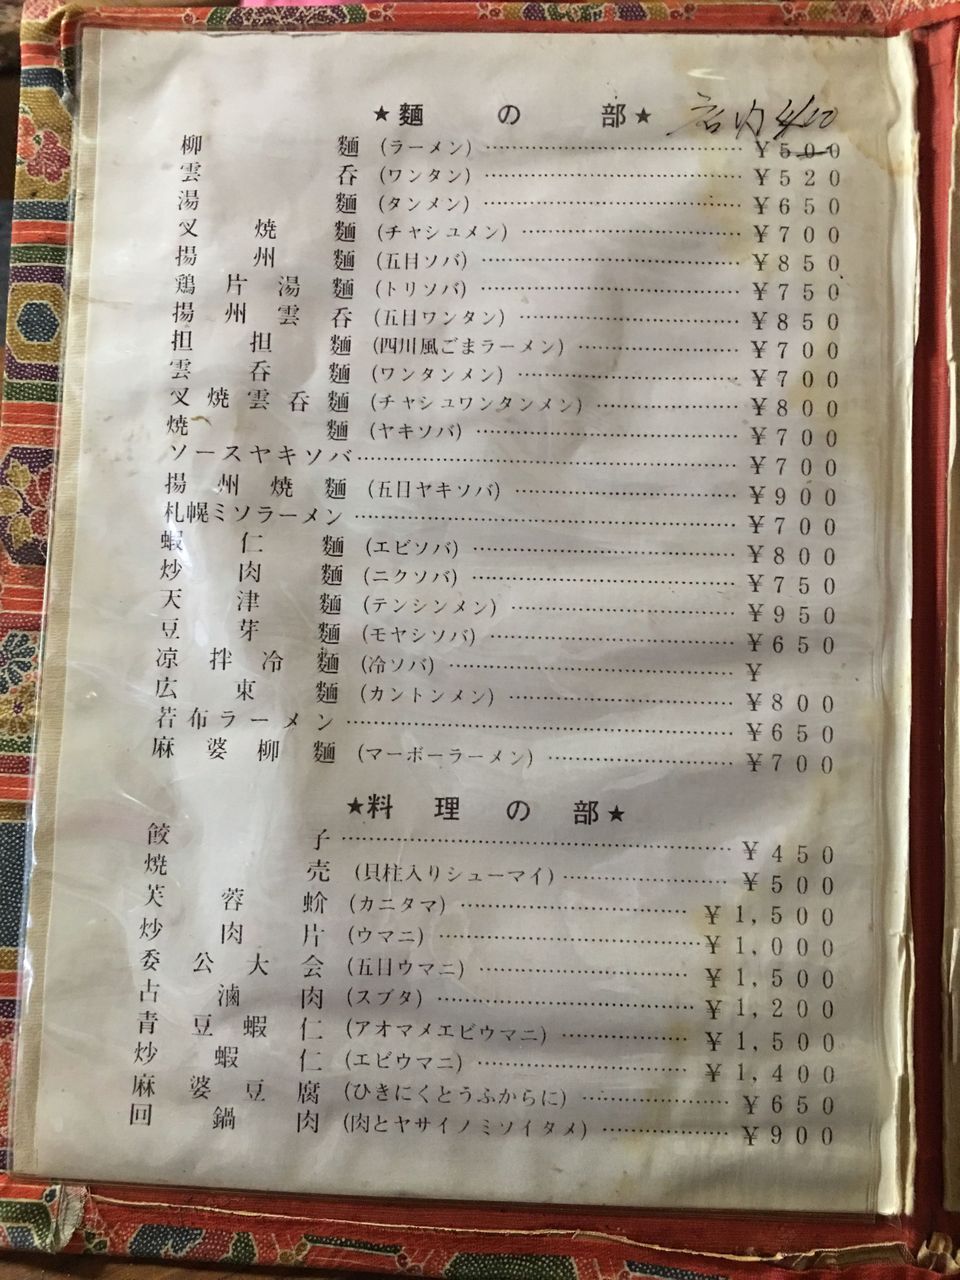 ★麵の部★ 店内400
柳麵(ラーメン)………¥500
雲呑(ワンタン)………¥520
湯麵(タンメン)………¥650
叉焼麵(チャシュメン)………¥700
揚州麵(五目ソバ)………¥850
鶏片湯麵(トリソバ)………¥750
揚州雲呑(五目ワンタン)………¥850
担担麵(四川風ごまラーメン)………¥700
雲呑麵(ワンタンメン)………¥700
叉焼雲呑麵(チャシュワンタンメン)………¥800
焼麵(ヤキソバ)………¥700
ソースヤキソバ………¥700
揚州焼麵(五目ヤキソバ)………¥900
札幌ミソラーメン………¥700
蝦仁麵(エビソバ)………¥800
炒肉麵(ニクソバ)………¥750
天津麵(テンシンメン)………¥950
豆芽麵(モヤシソバ)………¥650
凉拌冷麵(冷ソバ)………¥
広東麵(カントンメン)………¥800
若布ラーメン………¥650
麻婆柳麵(マーボーラーメン)………¥700
★料理の部★
餃子………¥450
焼売(貝柱入りシューマイ)………¥500
芙蓉蚧(カニタマ)………¥1,500
炒肉片(ウマニ)………¥1,000
委公大会(五目ウマニ)………¥1,500
古滷肉(スブタ)………¥1,200
青豆蝦仁(アオマメエビウマニ)………¥1,500
炒蝦仁(エビウマニ)………¥1,400
麻婆豆腐(ひきにくとうふからに)………¥650
回鍋肉(肉とヤサイノミソイタメ)………¥900